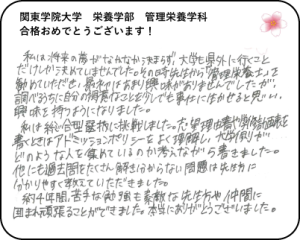 関東学院大学　栄養学部　管理栄養学科
合格おめでとうございます！
私は将来の夢がなかなか決まらず、大学も県外に行くこと
だけしか決めていませんでした。その時先生から「管理栄養士」を
勧めていただき、最初はあまり興味がありませんでしたが、
調べるうちに自分の得意なことを少しでも仕事に活かせると思い、
興味を持つようになりました。
私は総合型選抜に挑戦しました。志望理由書や学修計画書を
書くときはアドミッションポリシーをよく理解し、大学側が
どのような人を集めているのか考えながら書きました。
他にも過去問をたくさん解き、分からない問題は先生に
分かりやすく教えていただきました。
約4年間、苦手な勉強も素敵な先生方や仲間に
囲まれ頑張ることができました。本当にありがとうございました。